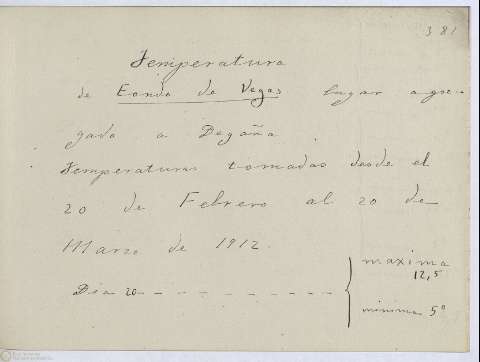 381
Temperatura
de Fondo de Vegas lugar agre-
gado a Degaña
Temperaturas tomadas desde el
20 de Febrero al 20 de
Marzo de 1912.
Dia 20 - - - - - - - - - { maxima 12,5
minima 5º